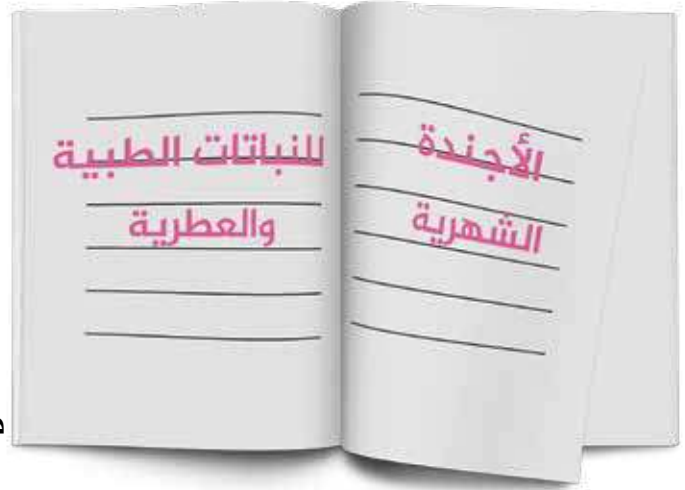 الأجندة
الشهرية
للنباتات الطبية
والعطرية